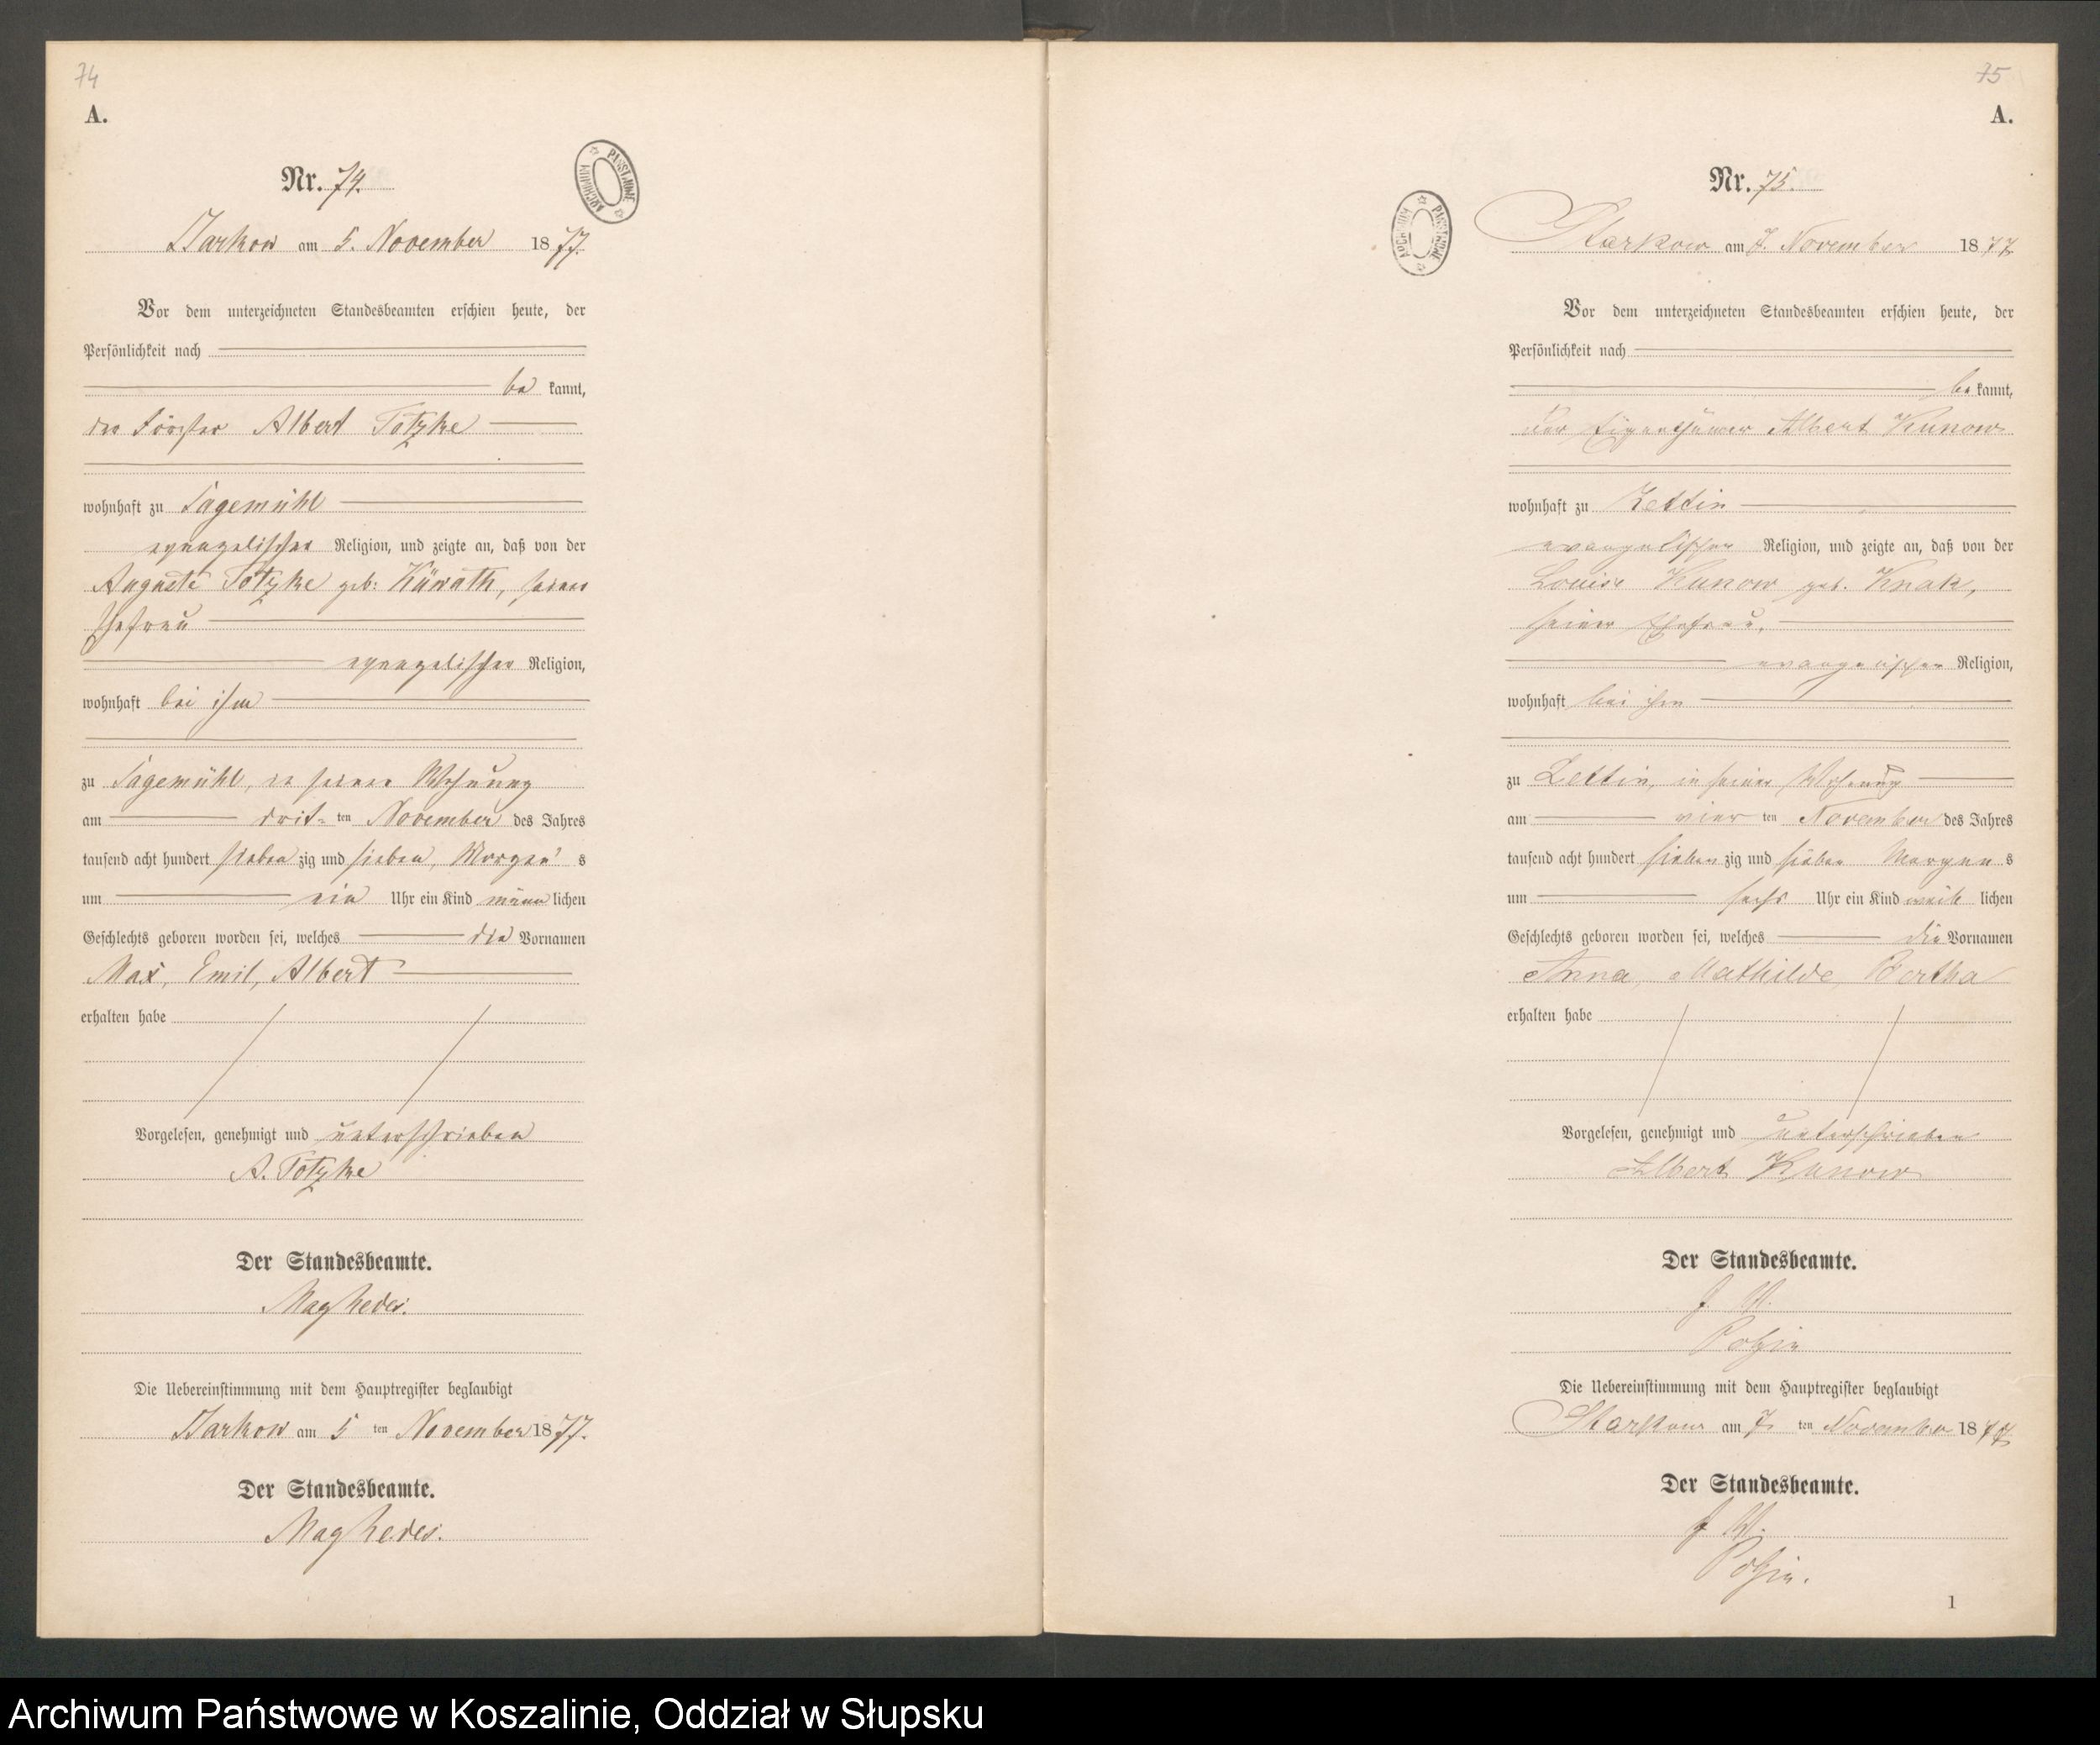 74
A.
Nr. 74.
ARCHIWUM PAŃSTWOWE
Starkow am 5. November 1877.
Vor dem unterzeichneten Standesbeamten erschien heute, der
Persönlichkeit nach
be kannt,
der Förster Albert Totzke
wohnhaft zu Sagemühl
evangelischer Religion, und zeigte an, daß von der
Auguste Totzke geb: Küwath, seiner
Ehefrau
evangelischer Religion,
wohnhaft bei ihm
zu Sagemühl, in seiner Wohnung
am drit- ten November des Jahres
tausend acht hundert sieben zig und sieben, Morgen's
um ein Uhr ein Kind männ lichen
Geschlechts geboren worden sei, welches die Vornamen
Max, Emil, Albert
erhalten habe
Vorgelesen, genehmigt und unterschrieben
A. Totzke
Der Standesbeamte.
Die Uebereinstimmung mit dem Hauptregister beglaubigt
Starkow am 5 ten November 1877.
Der Standesbeamte.
75
A.
Nr. 75.
ARCHIWUM PAŃSTWOWE
Starkow am 7. November 1877
Vor dem unterzeichneten Standesbeamten erschien heute, der
Persönlichkeit nach
be kannt,
Der Eigenthümer Albert Kunow
wohnhaft zu Zettin
evangelischer Religion, und zeigte an, daß von der
Louise Kunow geb. Knak,
seiner Ehefrau,
evangelischer Religion,
wohnhaft bei ihm
zu Zettin, in seiner Wohnung
am vier ten November des Jahres
tausend acht hundert sieben zig und sieben Morgen s
um sechs Uhr ein Kind weib lichen
Geschlechts geboren worden sei, welches die Vornamen
Anna, Mathilde, Bertha
erhalten habe
Vorgelesen, genehmigt und unterschrieben
Albert Kunow
Der Standesbeamte.
Die Uebereinstimmung mit dem Hauptregister beglaubigt
Starkow am 7. ten November 1877
Der Standesbeamte.
1
Archiwum Państwowe w Koszalinie, Oddział w Słupsku